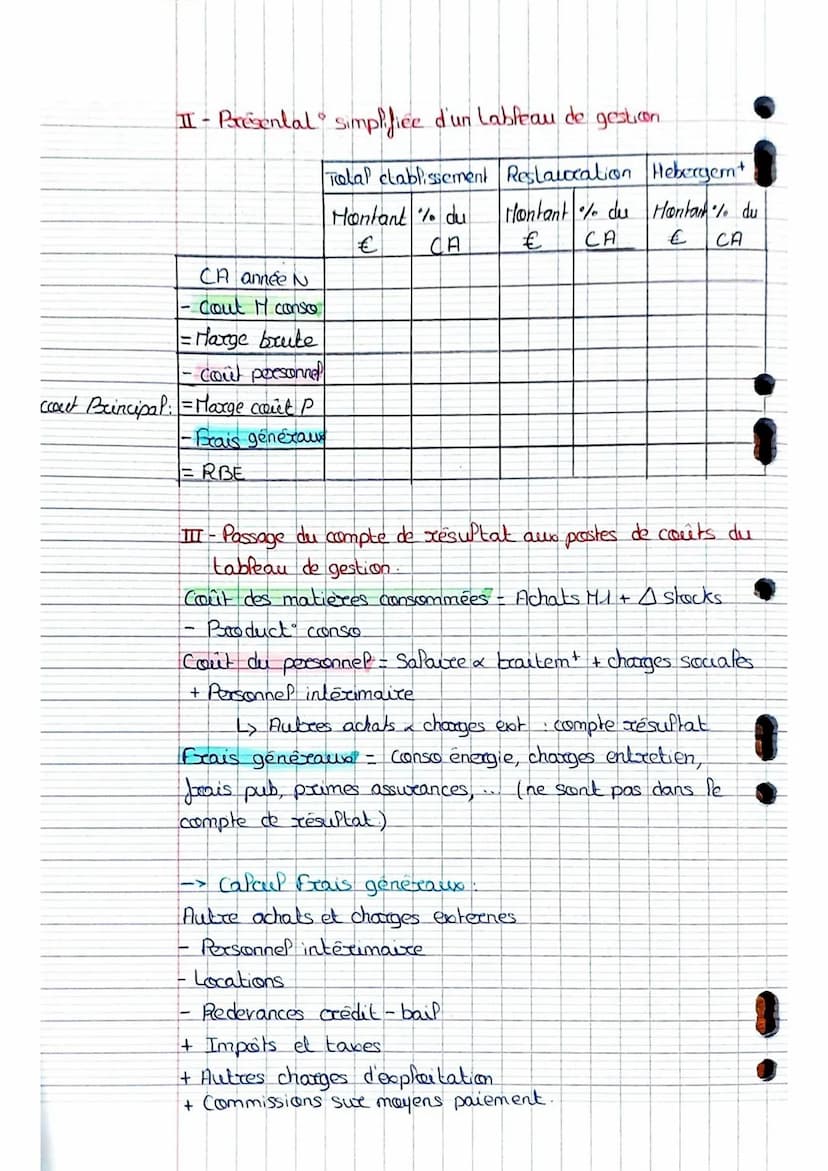 II - Présentat° simplifiée d'un tableau de gestion
Total établissement Restauration Hebergemt
Montant € % du CA Montant € % du CA Montant € % du CA
CA année N
- Cout M conso
= Marge brute
- coût personnel
cout Principal : = Marge coût P
- Frais généraux
= RBE
III - Passage du compte de résultat aux postes de coûts du
tableau de gestion.
Coût des matières consommées = Achats M1 + Δ stocks
- Product° conso
Coût du personnel = Salaire & traitemt + charges sociales
+ Personnel intérimaire
↳ Autres achats & charges ext : compte résultat
Frais généraux = conso énergie, charges entretien,
frais pub, primes assurances, ... (ne sont pas dans le
compte de résultat)
-> Calcul frais généraux :
Autre achats et charges externes
- Personnel intérimaire
- Locations
- Redevances crédit-bail
+ Impôts et taxes
+ Autres charges d'exploitation
+ Commissions sur moyens paiement.